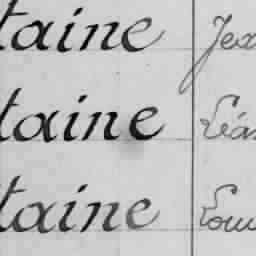 taine Jea
taine Léa
taine Lou